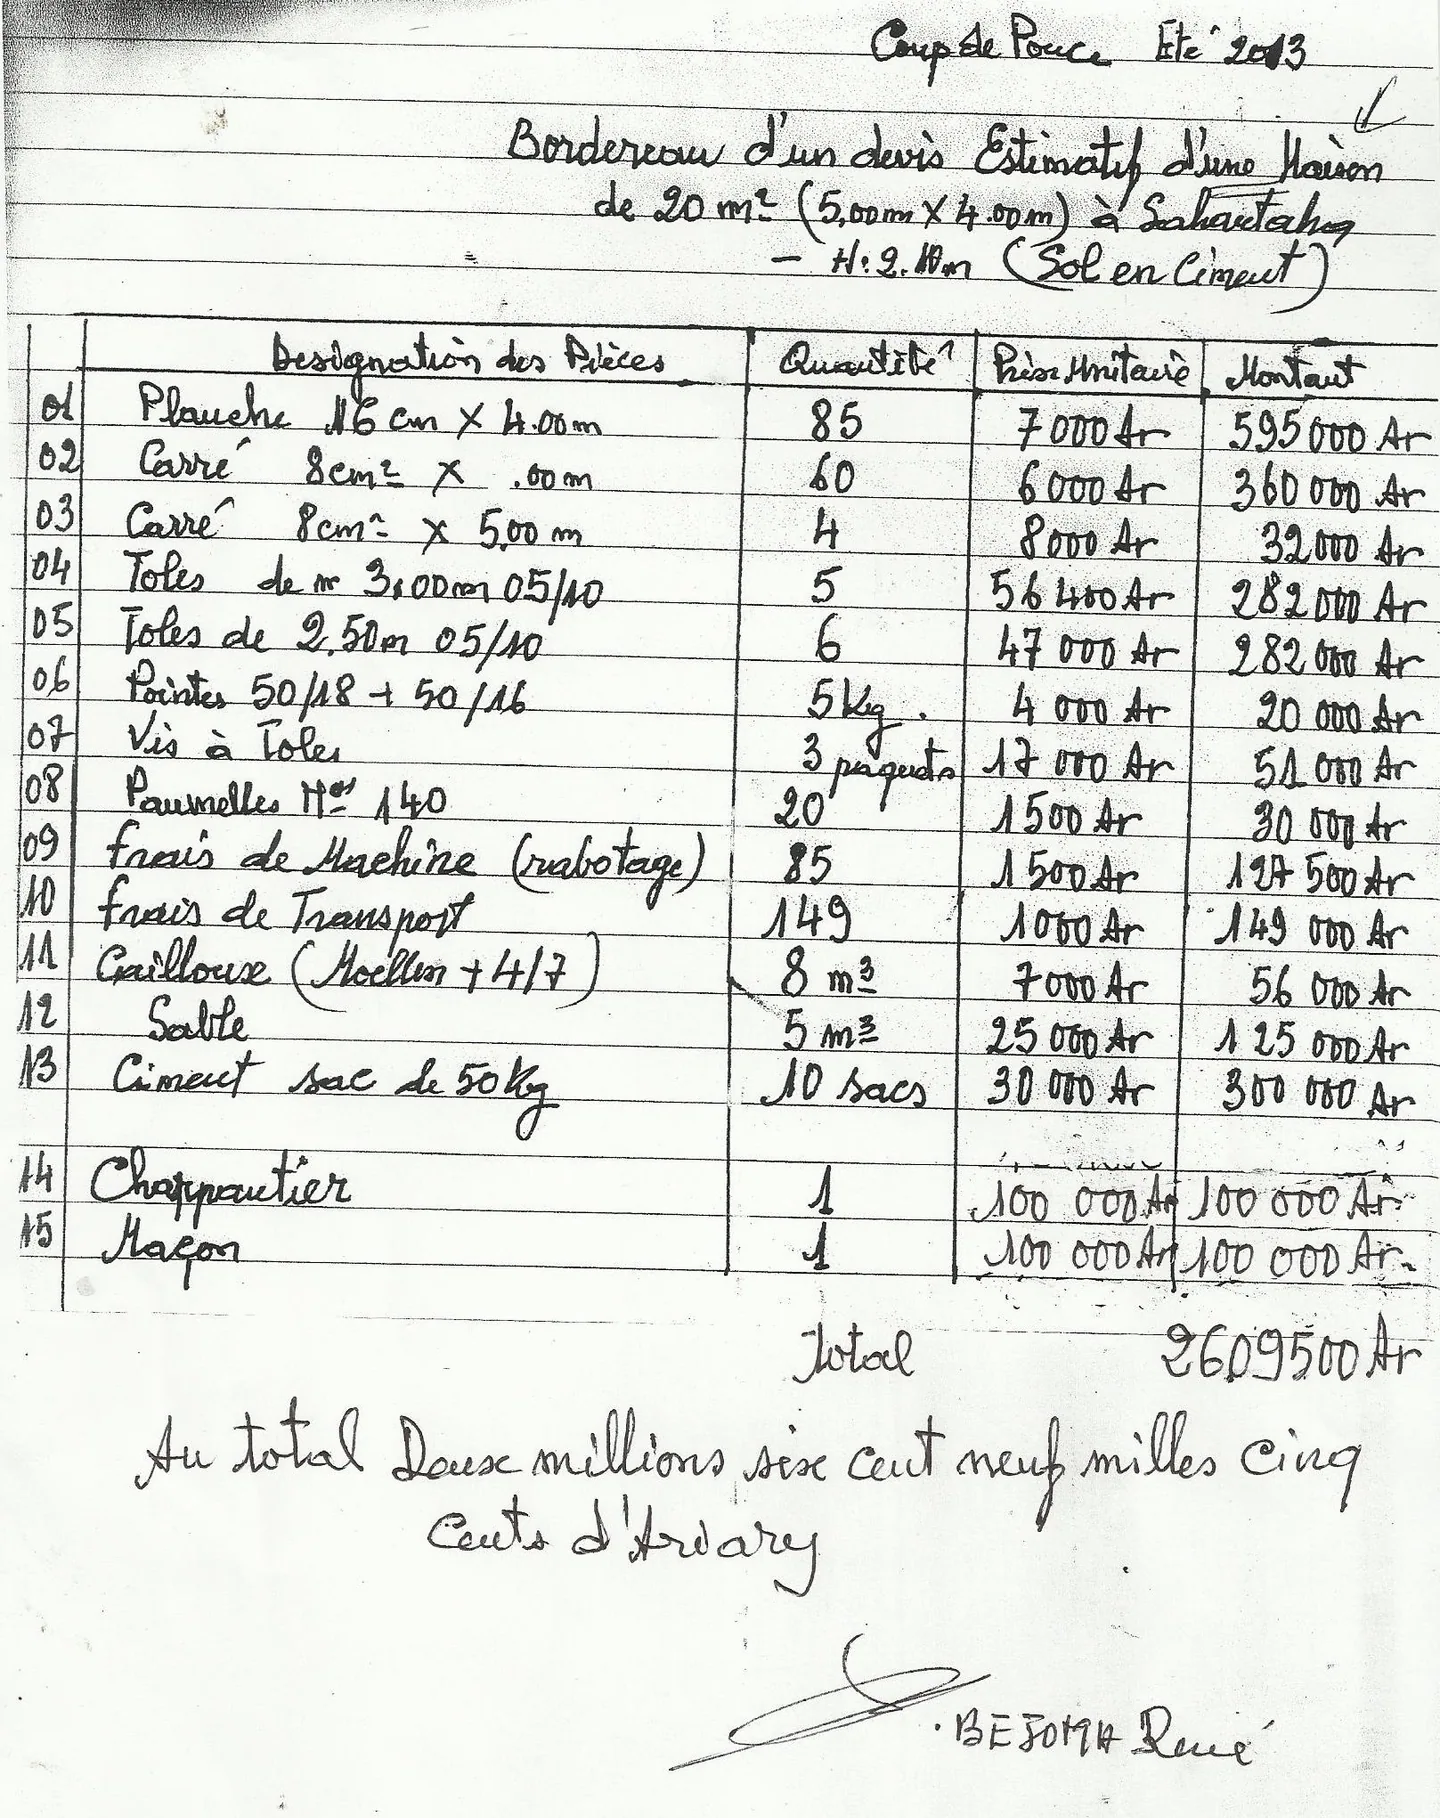 Coup de Pouce Eté 2013
Bordereau d'un devis Estimatif d'une Maison
de 20 m² (5,00m X 4.00m) à Sahantaha
- H: 2.10m (Sol en Ciment)
Designation des Pièces Quantité Prix Unitaire Montant
01 Planche 16 cm X 4.00m 85 7 000 Ar 595 000 Ar
02 Carré 8cm² X .00m 60 6 000 Ar 360 000 Ar
03 Carré 8cm² X 5,00 m 4 8 000 Ar 32 000 Ar
04 Toles de m 3,00m 05/10 5 56 400 Ar 282 000 Ar
05 Toles de 2.50m 05/10 6 47 000 Ar 282 000 Ar
06 Pointes 50/18 + 50/16 5 Kg. 4 000 Ar 20 000 Ar
07 Vis à Toles 3 paquets 17 000 Ar 51 000 Ar
08 Paumelles Nos 140 20 1 500 Ar 30 000 Ar
09 Frais de Machine (rabotage) 85 1 500 Ar 127 500 Ar
10 Frais de Transport 149 1 000 Ar 149 000 Ar
11 Cailloux (Moellen + 4/7) 8 m³ 7 000 Ar 56 000 Ar
12 Sable 5 m³ 25 000 Ar 125 000 Ar
13 Ciment sac de 50 Kg 10 sacs 30 000 Ar 300 000 Ar
14 Charppantier 1 100 000 Ar 100 000 Ar
15 Maçon 1 100 000 Ar 100 000 Ar
Total 2609500 Ar
Au total Deux millions six cent neuf milles cinq
cents d'Ariary
BEJOMA René